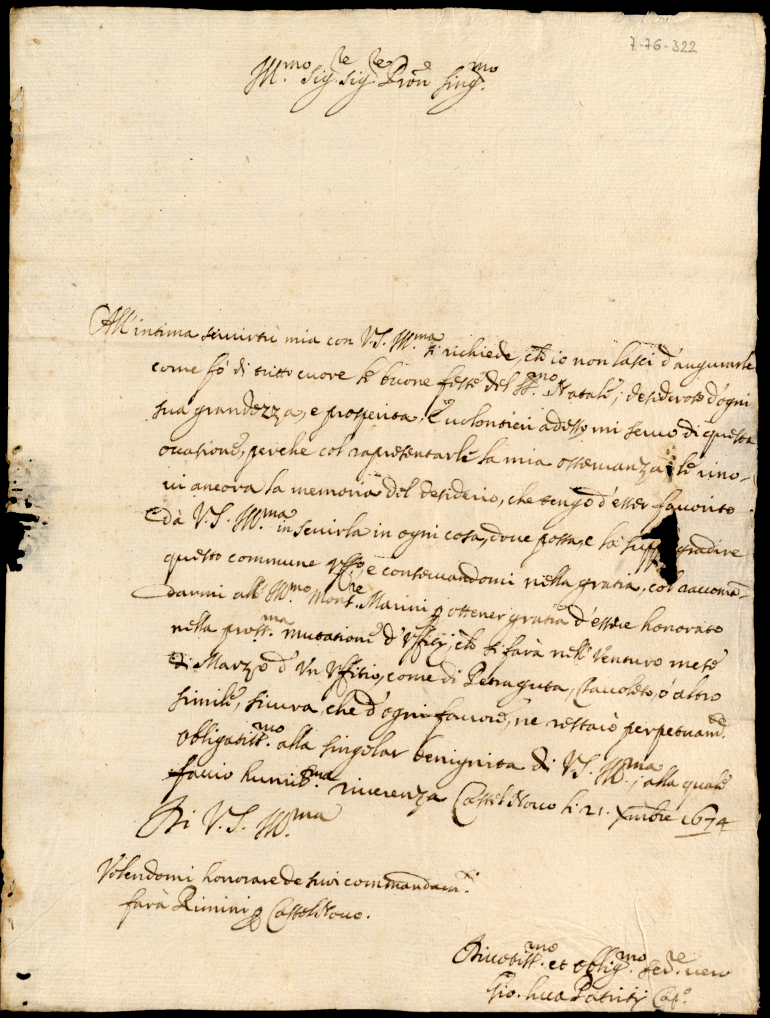 7-76-322
Ill.mo Sig.re Sig.re Pron Sing.mo
All'intima servitù mia con V.S. Ill.ma si richiede, ch'io non lasci d'augurarle
come fò di tutto cuore le buone feste del SS.mo Natale, desideroso d'ogni
sua grandezza, e prosperita, E volontieri adesso mi servo di questa
ocasione, perche col rapresentarle la mia osservanza, le rino-
vi ancora la memoria del desiderio, che tengo d'esser favorito
da V.S. Ill.ma in servirla in ogni cosa, dove possa, e la gradire
questo commune e conservandomi nella gratia, col raccoman-
darmi all'Ill.mo Mons.re Marini p ottener gratia d'essere honorato
nella pross.ma mutatione d'Uffitij, che si farà nell'venturo mese
di Marzo d'Un Uffitio, come di Petraguta, Tavoleto, ò altro
simile, sicura, che d'ogni favore, ne restarò perpetuam.te
obligatiss.mo alla singolar benignita di V.S. Ill.ma, alla quale
faccio humilis.ma riverenza Castel Novo li 21. Xmbre 1674
Di V.S. Ill.ma
Volendomi honorare de suoi commandam.ti
farà Rimini p Castel Novo.
Divotiss.mo et Oblig.mo Ser.re vero
Gio. Luca Patritij Cap.o